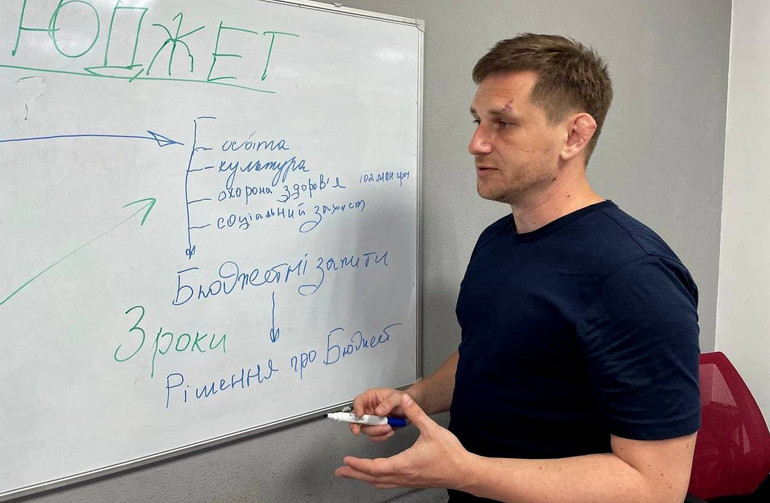 ЮДЖЕТ
освіта
культура
охорона здоров'я 102 млн грн
соціальний захист
Бюджетні запити
Зроки
Рішення про Бюджет